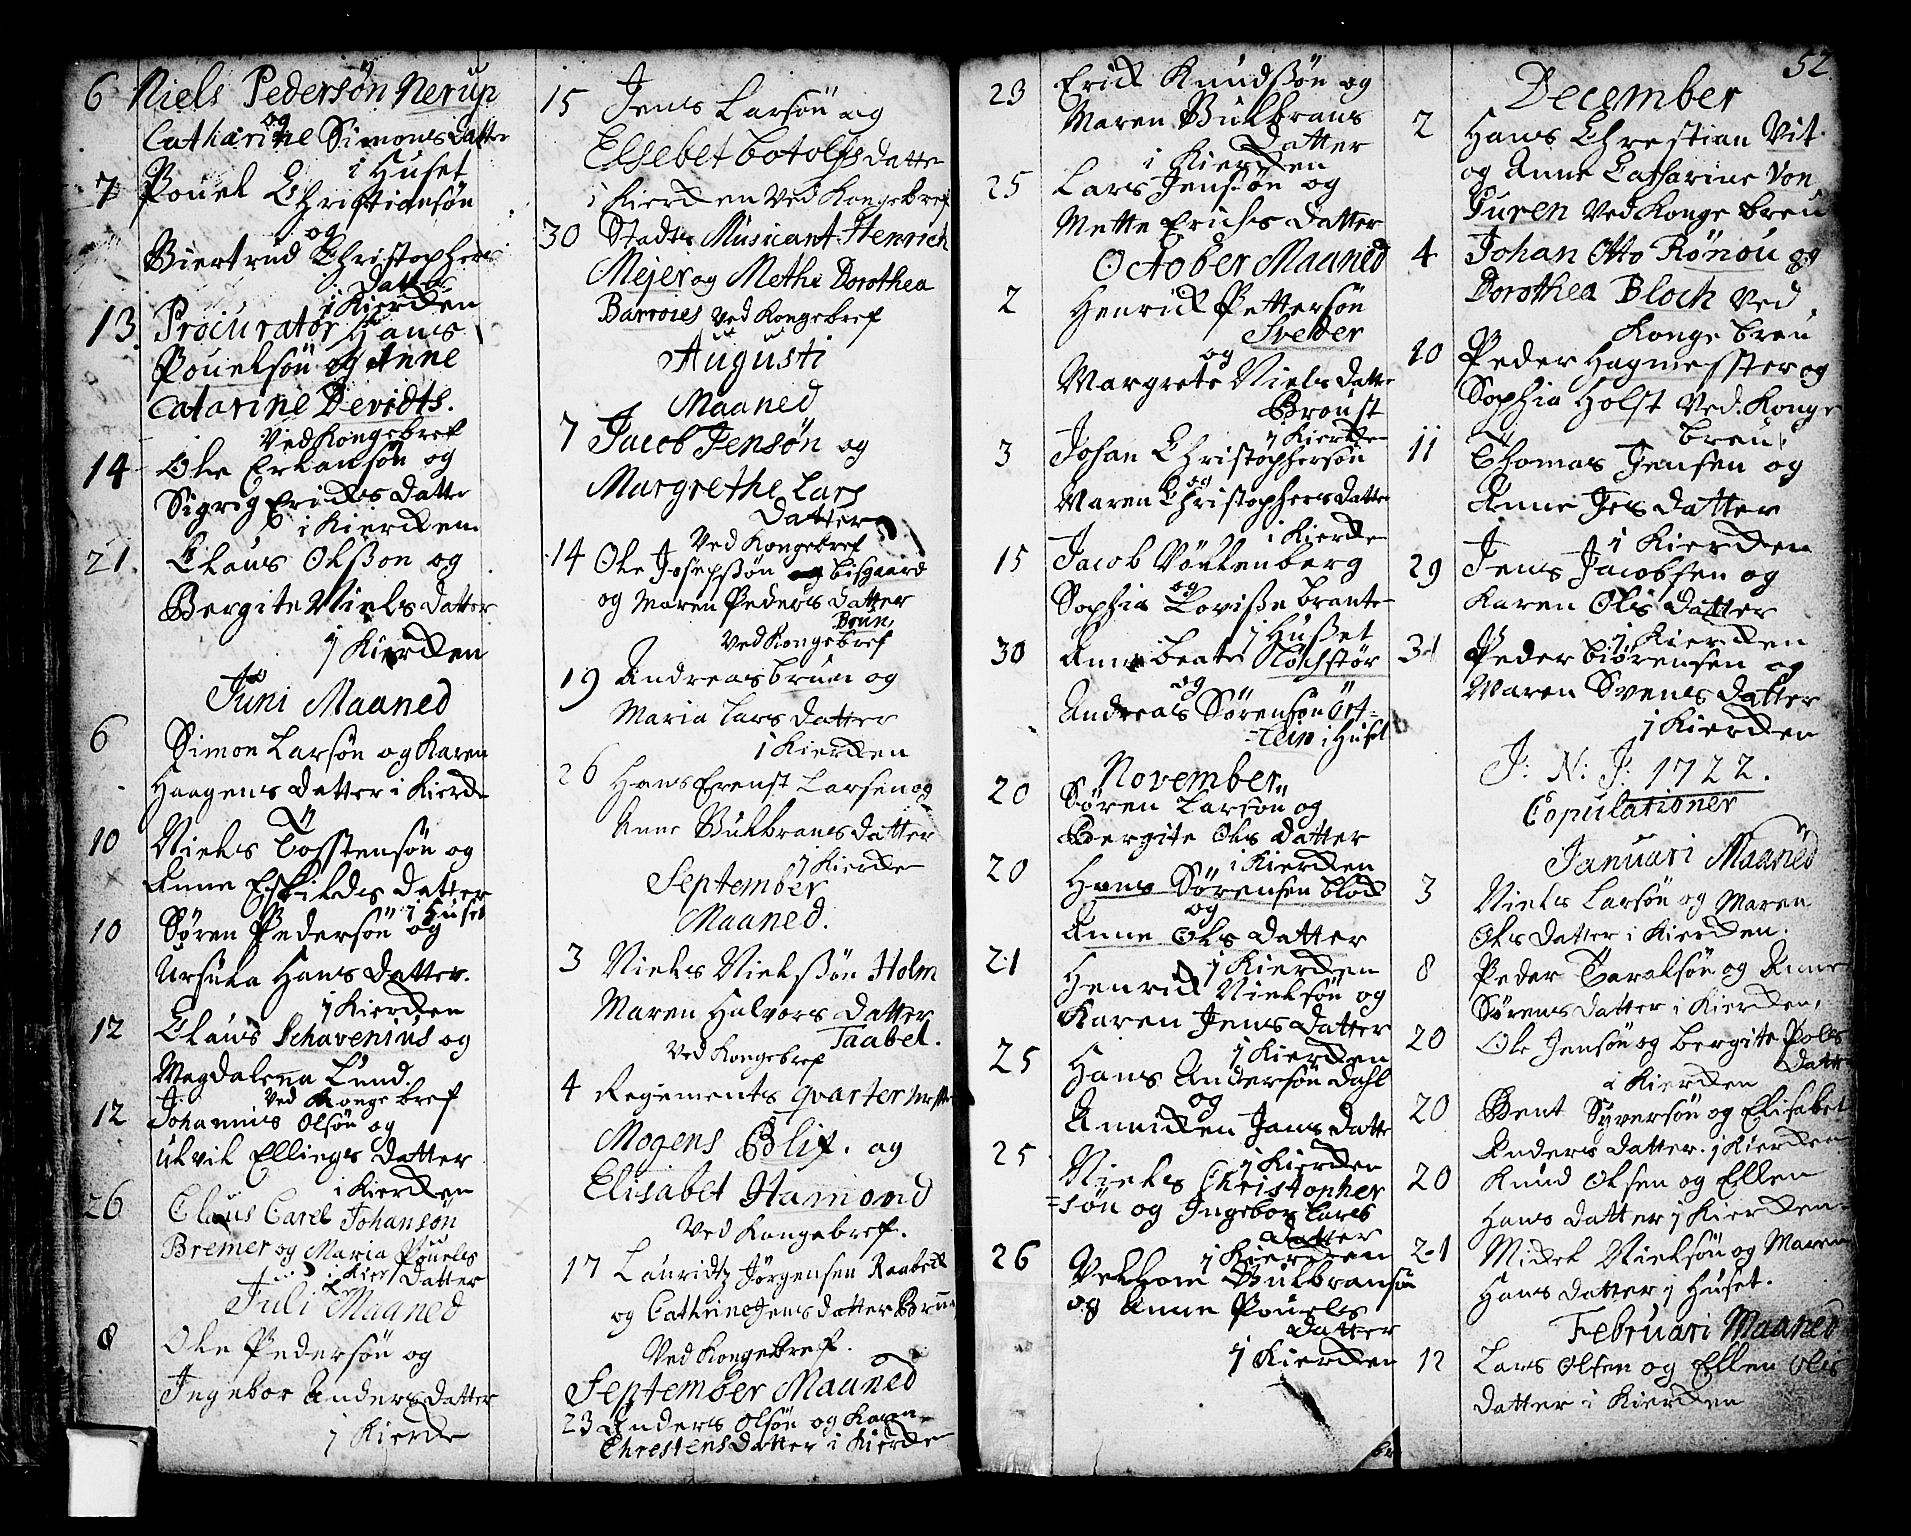 6 Niels Pedersøn Nerup
og
Catharine Simons Datter
i Huset
7 Pouel Christiansøn
og
Giertrud Christophers
Datter
i Kiercken
13. Procurator Hans
Pouelsøn og Anne
Catarine Devidts.
Ved Kongebref
14 Ole Erlansøn og
Sigrig Ericks Datte
i Kiercken
21. Claus Olsson og
Bergite Niels Datter
j Kiercken
Juni Maaned
6 Simon Larsøn og Karen
Haagens Datter i Kierck
10 Niels Tosstensøn og
Anne Eskilds Datter
j Huset
10 Søren Pedersøn og
Ursula Hans Datter.
j Kiercken
12 Claus Schavenius og
Magdalena Lund.
Ved Konge bref
12 Johannis Olsøn og
Ulvil Ellings Datter
i Kiercken
26 Claus Carel Johansøn
Bremer og Maria Pouels
i Kier Datter
Juli Maaned
8 Ole Pedersøn og
Ingebor Anders Datter
j Kiercke
15 Jens Larsøn og
Elsebet Botolfs Datte
i Kiercken Ved Kongebref
30 Stads Musicant Henrich
Mejer og Methe Dorothea
Barroies Ved Kongebref
Augusti
Maaned
7 Jacob Jensøn og
Margrethe Lars
Datter
Ved Kongebref
14 Ole Josepsøn Bisgaard
og Maren Peders Datter
Brun,
Ved Kongebref
19 Andreas Brun og
Maria Lars Datter
i Kiercken
26 Hans Ernst Larsen og
Anne Gulbrans Datter
j Kiercke
September
Maaned.
3 Niels Nielssøn Holm
Maren Halvors Datter
Taabel.
Ved Kongebref
4 Regiments qvartermester
Mogens Blix. og
Elisabet Hamond
Ved Kongebref.
17 Lauridtz Jørgensen Raabeck
og Cathrine Jens datter Brun
Ved Kongebref.
September Maaned
23 Anders Olsøn og Karen
Chrestens Datter i Kiercke
52
23 Erick Knudssøn og
Maren Gulbrans
Datter
i Kiercken
25 Lars Jensøn og
Mette Erichs Datter
October Maaned
2 Henrick Pettersøn
Sveder
og
Margrete Niels Datte
Broust
j Kiercke
3 Johan Christophersøn
og
Maren Christophers Datter
i Kiercke
15 Jacob Vøllenberg
og
Sophia Lovisse Brante
j Husset
30 Anne Beate Nøchstør
og
Andreas Sørensøn Ört
=tein i Huset
November
20 Søren Larsøn og
Bergite Ols Datter
i Kiercken
20 Hans Sørensen Block
og
Anne Ols Datter
j Kiercken
21 Henrick Nielsøn og
Karen Jens Datter
j Kiercken
25 Hans Andersøn Dahl
og
Annicken Jans Datte
j Kiercken
25 Niels Christopher
=søn og Ingebor Lars
Datter
j Kiercken
26 Velhom Gulbransøn
og Anne Pouels
Datter
j Kiercken
December
2 Hans Chrestian Vit
og Anne Catharine Von
Furen Ved Konge breu
4 Johan Otto Rønou og
Dorothea Bloch Ved
Konge breu
10 Peder Hagmesster og
Sophia Holst Ved. Konge
breu
11 Thomas Jensen og
Anne Jes Datter
i Kiercken
29 Jens Jacobsen og
Karen Ols Datter
j Kiercken
31 Peder Biørensen og
Maren Svens Datter
j Kiercken
J: N: J: 1722.
Copulationer
Januari Maaned
3 Niels Larsøn og Maren
Ols Datter i Kiercken.
8 Peder Taralsøn og Anne
Sørens Datter i Kiercken,
20 Ole Jensøn og Bergite Pols
Datte
i Kiercken
20 Bent Syversøn og Elisabet
Anders Datter. j Kiercken
20 Knud Olsen og Ellen
Hans Datter j Kiercken
21 Mickel Nielsøn og Maren
Hans Datter j Huset.
Februari Maaned
12 Lars Olsen og Ellen Ols
Datter i Kiercken